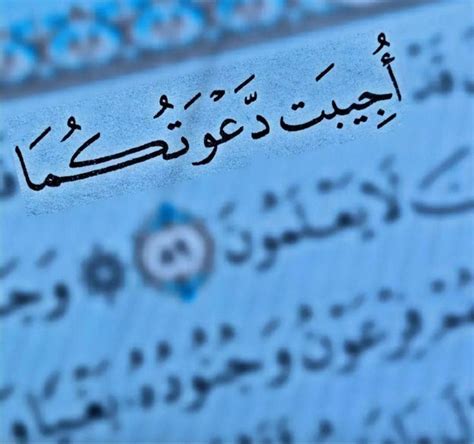 قَدْ أُجِيبَت دَّعْوَتُكُمَا
لَا يَعْلَمُونَ ٨٩ وَجَـ
ـهُمْ فِرْعَوْنُ وَجُنُودُهُۥ بَغْيًا وَ